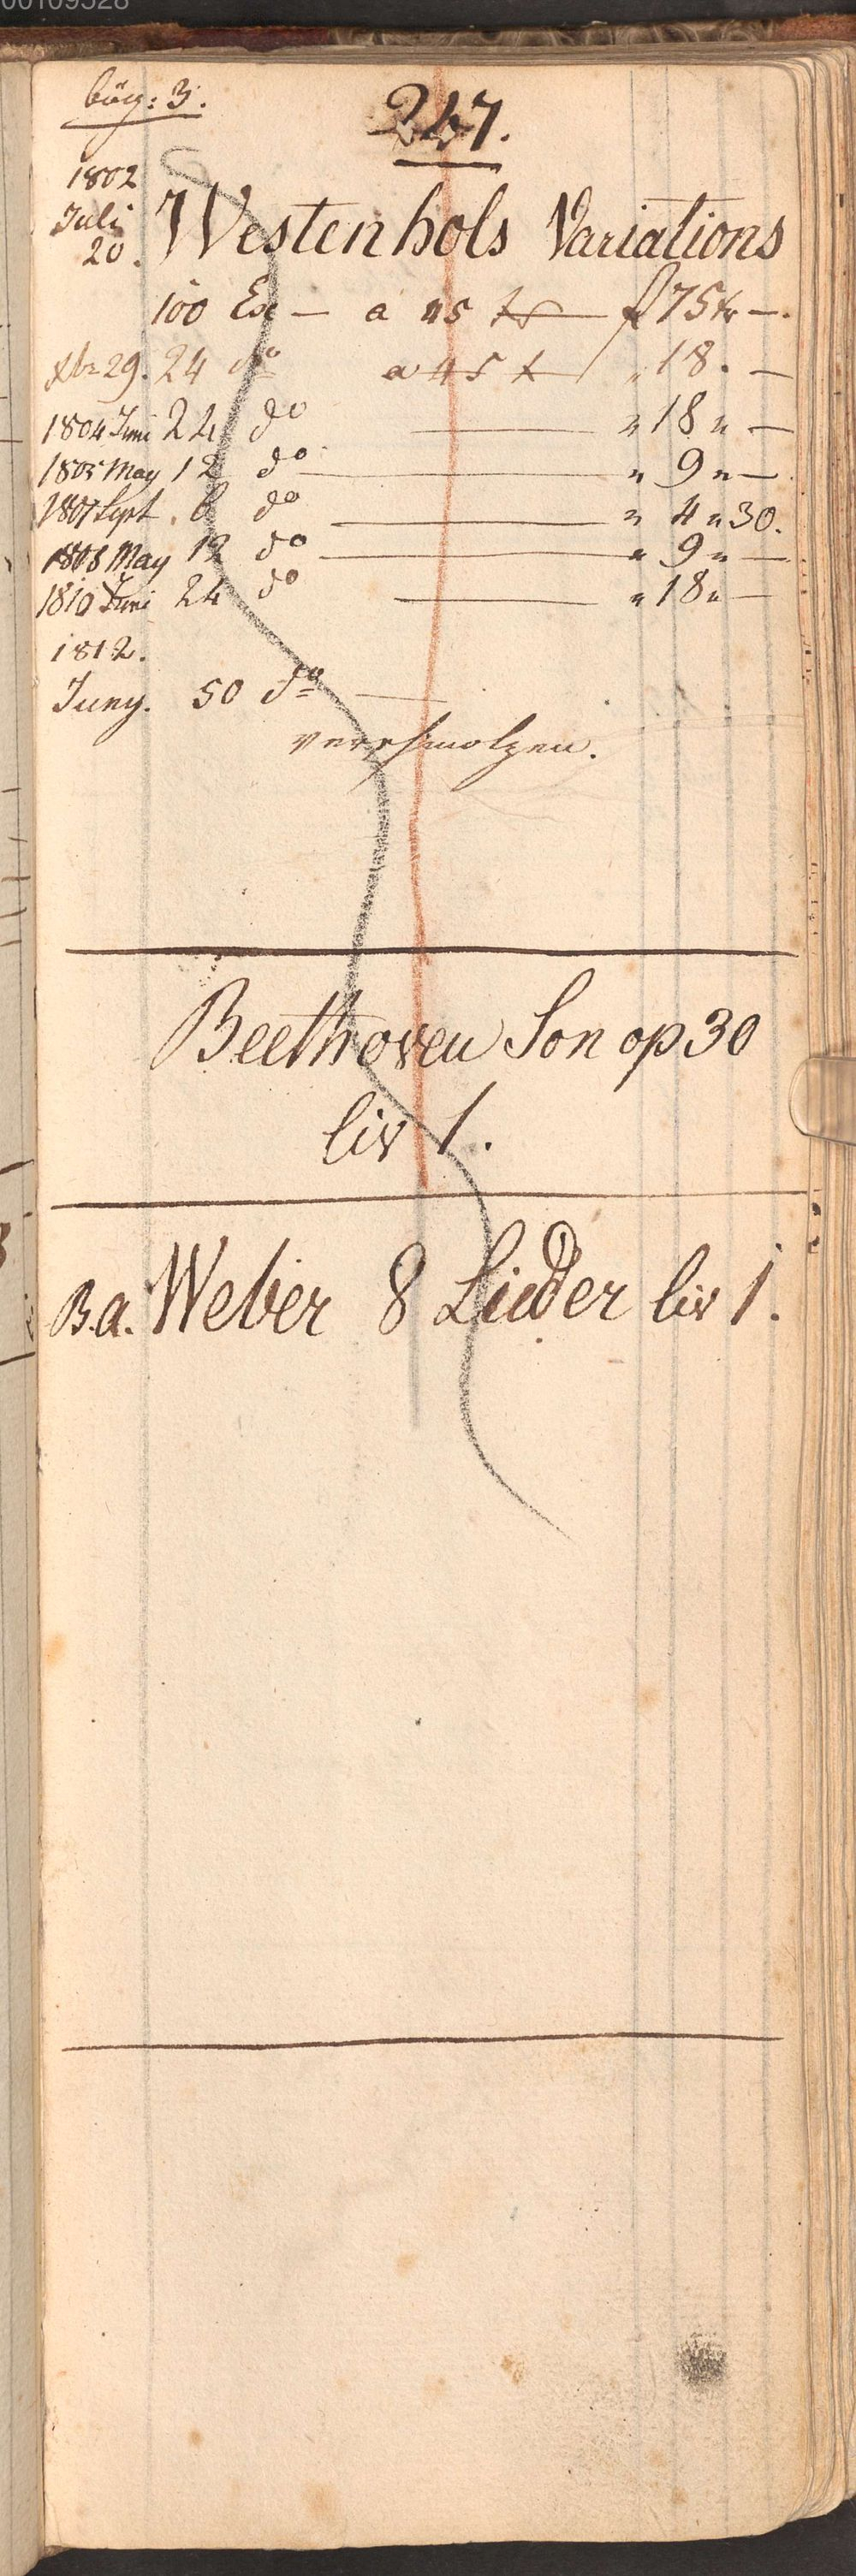 00109528
bög: 3.
247.
1802
Juli
20. Westenhols Variations
100 Ex — a 45 xr — f 75 xr —.
Xbr 29. 24 do a 45 x — " 18. —
1804 Juni 24 do — " 18 " —
1805 May 12 do — " 9 " —
1807 Sept. 6 do — " 4 " 30.
1808 May 12 do — " 9 " —
1810 Juni 24 do — " 18 " —
1812.
Juny. 50 do —
verschmolzen.
Beethoven Son op 30
liv 1.
B.a. Weber 8 Lieder liv 1.